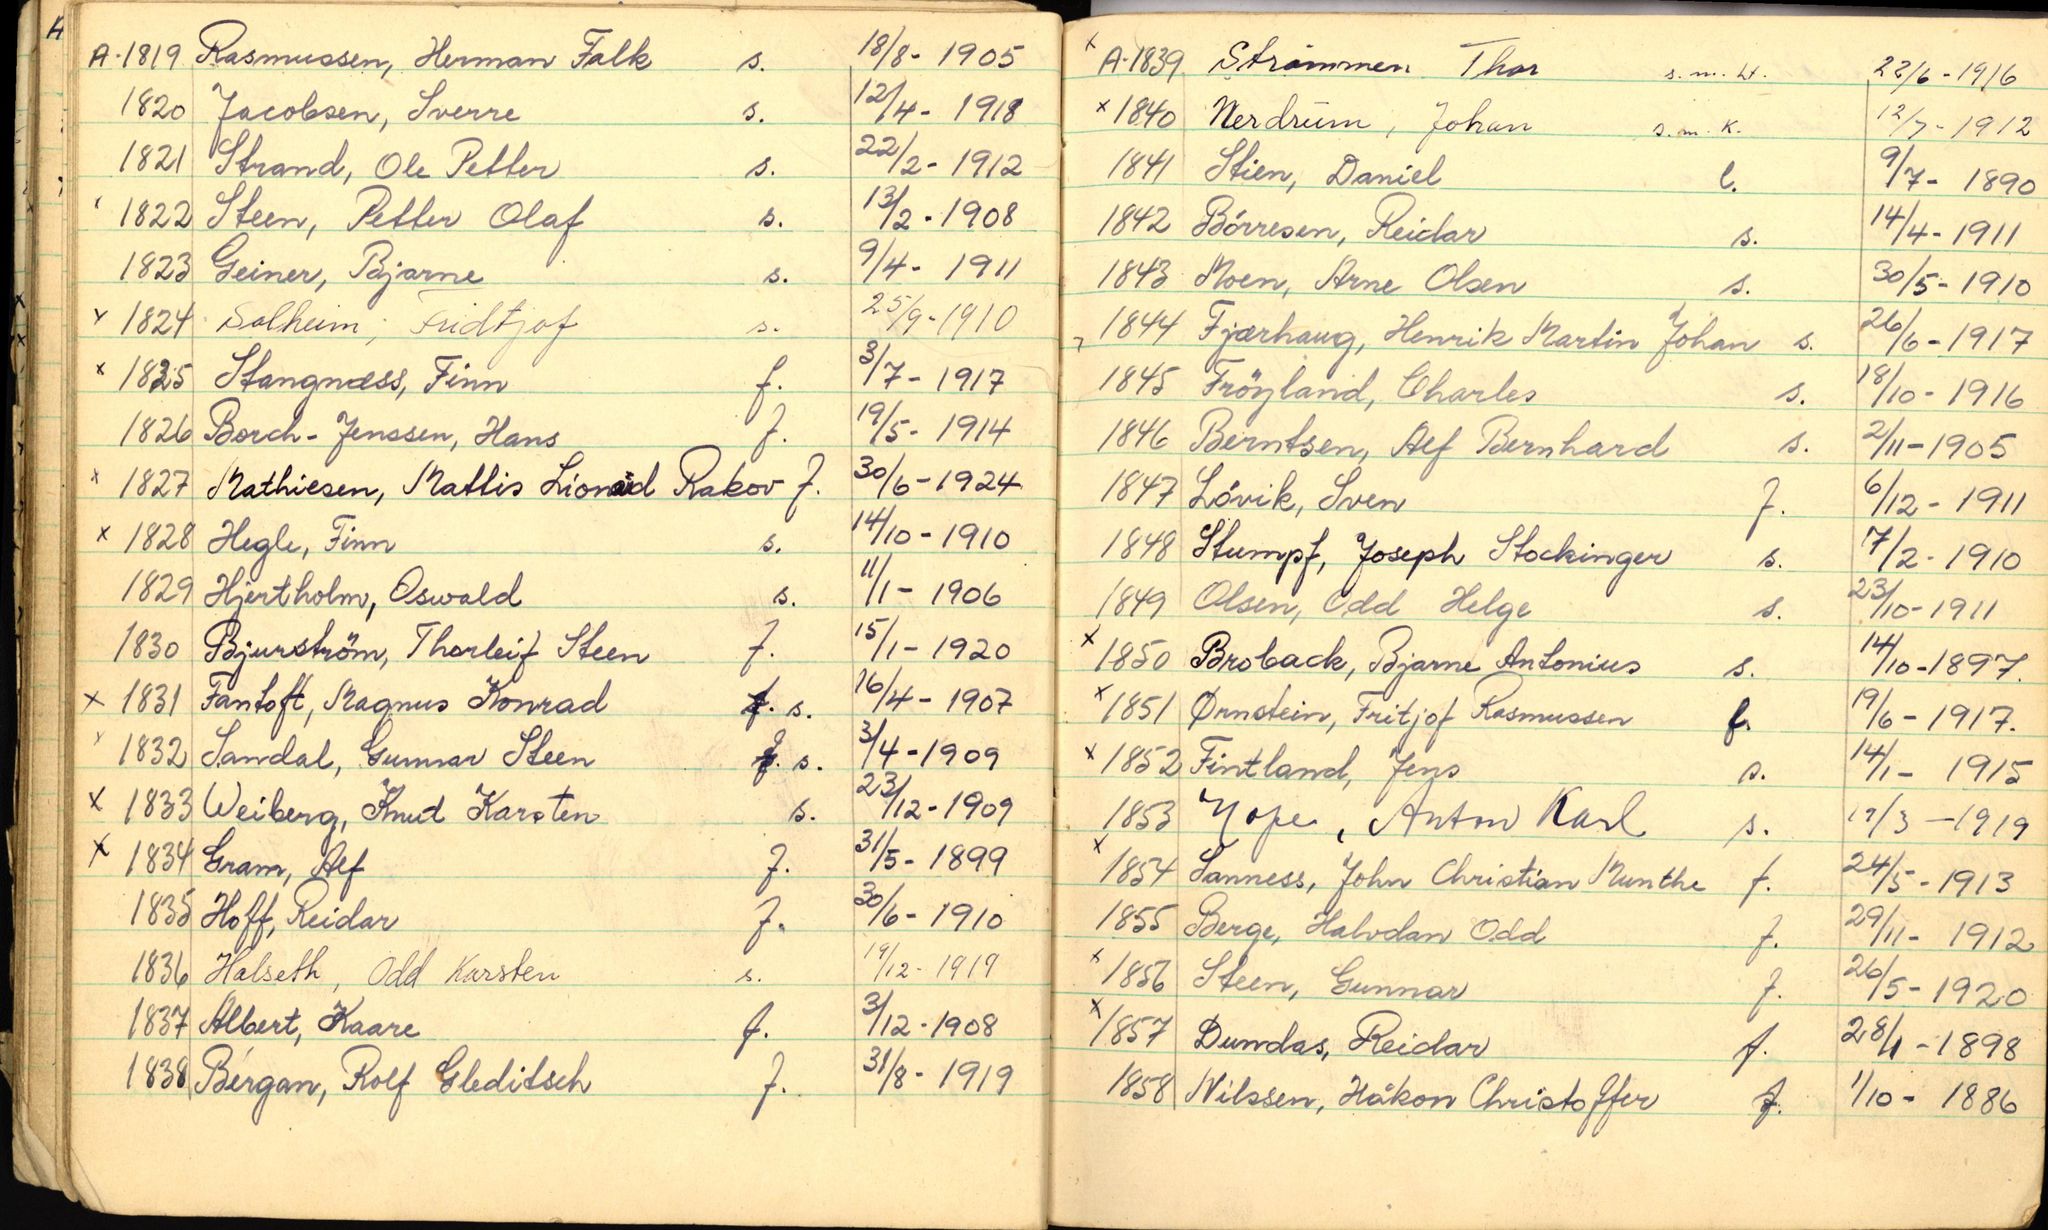 A
A-1819 Rasmussen, Herman Falk s. 18/8 - 1905
1820 Jacobsen, Sverre s. 12/4 - 1918
1821 Strand, Ole Petter s. 22/2 - 1912
1822 Steen, Petter Olaf s. 13/2 - 1908
1823 Geiner, Bjarne s. 9/4 - 1911
x 1824 Solheim, Fridtjof s. 25/9 - 1910
x 1825 Stangnæss, Finn f. 3/7 - 1917
1826 Borch-Jenssen, Hans f. 19/5 - 1914
x 1827 Mathiesen, Mattis Rakov f. 30/6 - 1924
x 1828 Hegle, Finn s. 14/10 - 1910
1829 Hjertholm, Oswald s. 11/1 - 1906
1830 Bjurström, Thorleif Steen f. 15/1 - 1920
x 1831 Fantoft, Magnus Konrad f. s. 16/4 - 1907
x 1832 Sandal, Gunnar Steen f. s. 3/4 - 1909
x 1833 Weiberg, Knud Karsten s. 23/12 - 1909
x 1834 Gram, Alf f. 31/5 - 1899
1835 Hoff, Reidar f. 30/6 - 1910
1836 Halseth, Odd Karsten s. 19/12 - 1919
1837 Albert, Kaare f. 3/12 - 1908
1838 Bergan, Rolf Gleditsch f. 31/8 - 1919
x A-1839 Strömmen Thor s. m. 1916
x 1840 Nerdrum, Johan s. m. K. 12/7 - 1912
1841 Stien, Daniel l. 9/7 - 1890
1842 Börresen, Reidar s. 14/4 - 1911
1843 Moen, Arne Olsen s. 30/5 - 1910
1844 Fjærhaug, Henrik Martin Johan s. 26/6 - 1917
1845 Fröyland, Charles s. 18/10 - 1916
1846 Berntsen, Alf Bernhard s. 2/11 - 1905
1847 Lövik, Sven f. 6/12 - 1911
1848 Stumpf, Joseph Stockinger s. 7/2 - 1910
1849 Olsen, Odd Helge s. 23/10 - 1911
x 1850 Broback, Bjarne Antonius s. 14/10 - 1897.
x 1851 Ørnstein, Fritjof Rasmussen f. 19/6 - 1917.
x 1852 Fintland, Jens s. 14/1 - 1915
1853 Nope, Anton Karl s. 1919
x 1854 Sanness, John Christian Munthe f. 24/5 - 1913
1855 Berge, Halvdan Odd f. 29/11 - 1912
x 1856 Steen, Gunnar f. 26/5 - 1920
x 1857 Dundas, Reidar f. 1898
1858 Nilssen, Håkon Christoffer f. 1/10 - 1886